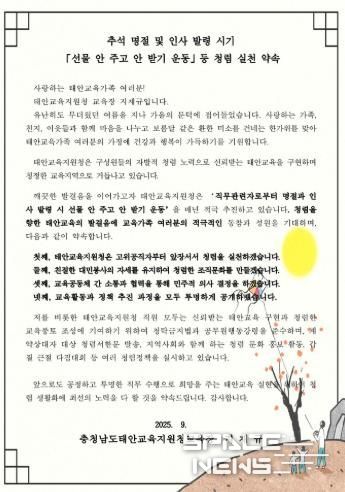 추석 명절 및 인사 발령 시기
「선물 안 주고 안 받기 운동」 등 청렴 실천 약속
사랑하는 태안교육가족 여러분!
태안교육지원청 교육장 지재규입니다.
유난히도 무더웠던 여름을 지나 가을의 문턱에 접어들었습니다. 사랑하는 가족,
친지, 이웃들과 함께 마음을 나누고 보름달 같은 환한 미소를 건네는 한가위를 맞아
태안교육가족 여러분의 가정에 건강과 행복이 가득하기를 기원합니다.
태안교육지원청은 구성원들의 자발적 청렴 노력으로 신뢰받는 태안교육을 구현하며
청정한 교육지역으로 거듭나고 있습니다.
깨끗한 발걸음을 이어가고자 태안교육지원청은 '직무관련자로부터 명절과 인
사 발령 시 선물 안 주고 안 받기 운동'을 매년 적극 추진하고 있습니다. 청렴을
향한 태안교육의 발걸음에 교육가족 여러분의 적극적인 동참과 성원을 기대하며,
다음과 같이 약속합니다.
첫째, 태안교육지원청은 고위공직자부터 앞장서서 청렴을 실천하겠습니다.
둘째, 친절한 대민봉사의 자세를 유지하여 청렴한 조직문화를 만들겠습니다.
셋째, 교육공동체 간 소통과 협력을 통해 민주적 의사 결정을 하겠습니다.
넷째, 교육활동과 정책 추진 과정을 모두 투명하게 공개하겠습니다.
저를 비롯한 태안교육지원청 직원 모두는 신뢰받는 태안교육 구현과 청렴한
교육풍토 조성에 기여하기 위하여 청탁금지법과 공무원행동강령을 준수하며, 계
약상대자 대상 청렴서한문 발송, 지역사회와 함께 하는 청렴 문화 홍보 활동, 갑
질 근절 다짐대회 등 여러 청렴정책을 실시하고 있습니다.
앞으로도 공정하고 투명한 직무 수행으로 희망을 주는 태안교육 실현을 위하여 청
렴 생활화에 최선의 노력을 다 할 것을 약속드립니다. 감사합니다.
2025. 9.
충청남도태안교육지원청
NEWS